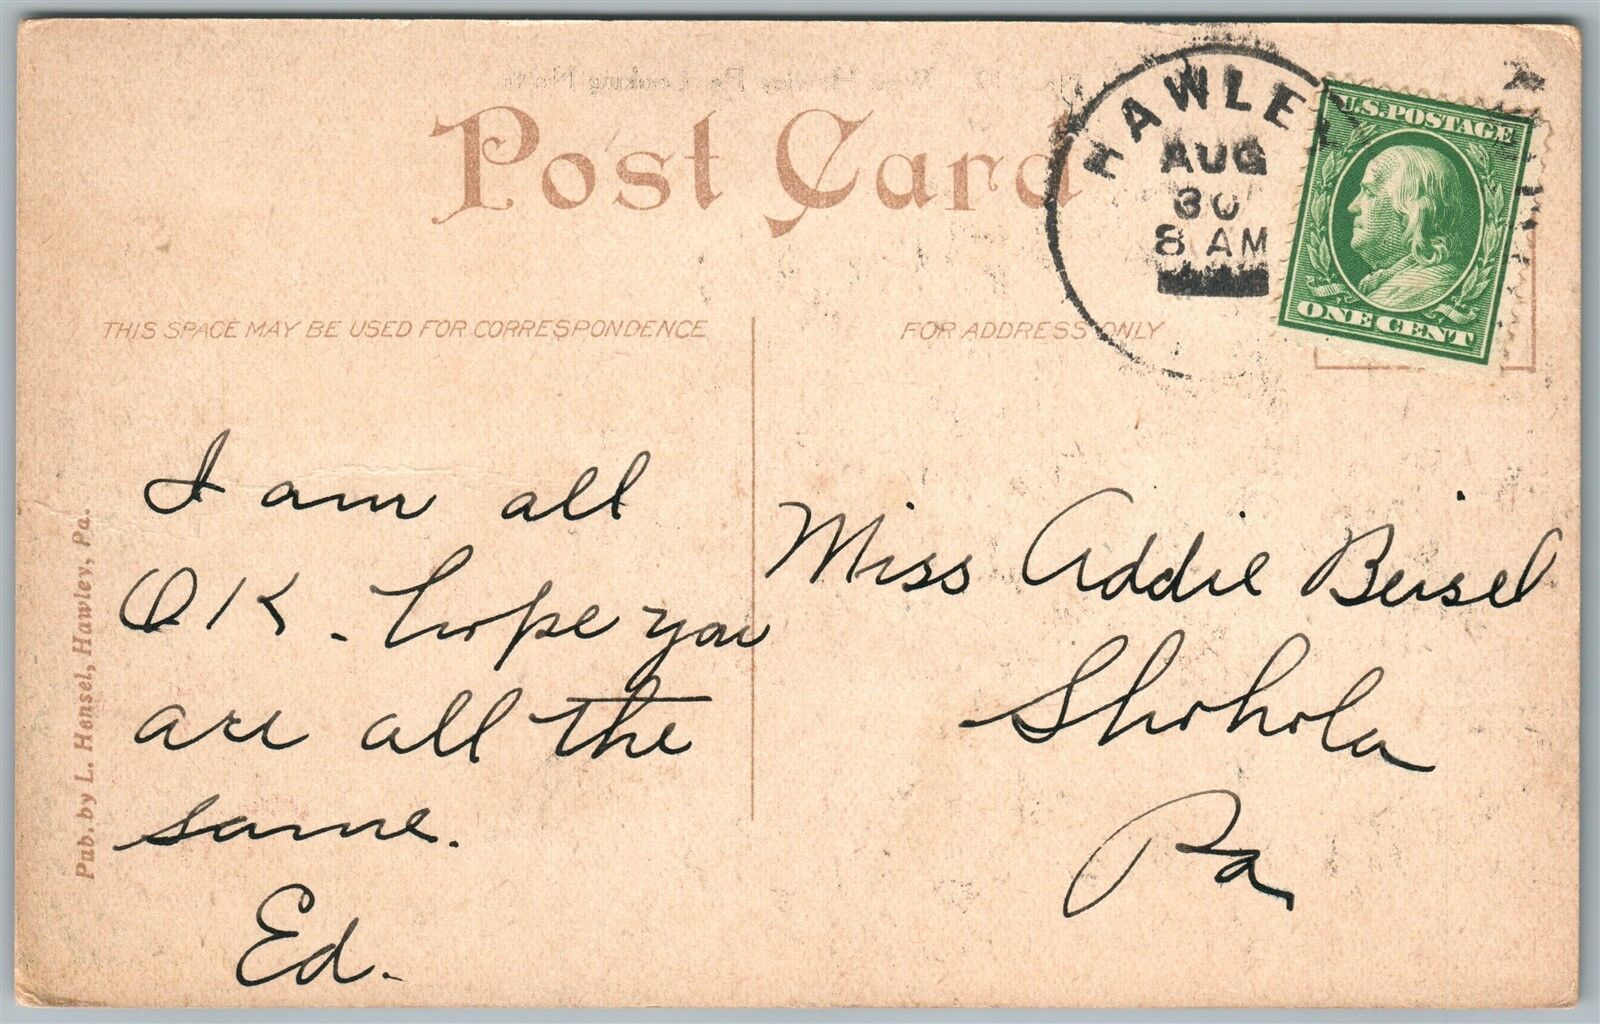 Post Card
HAWLEY
AUG
30
8 AM
U.S. POSTAGE
ONE CENT
THIS SPACE MAY BE USED FOR CORRESPONDENCE
FOR ADDRESS ONLY
I am all
OK. hope you
are all the
same.
Ed.
Miss Addie Beisel
Shohola
Pa
Pub. by L. Hensel, Hawley, Pa.